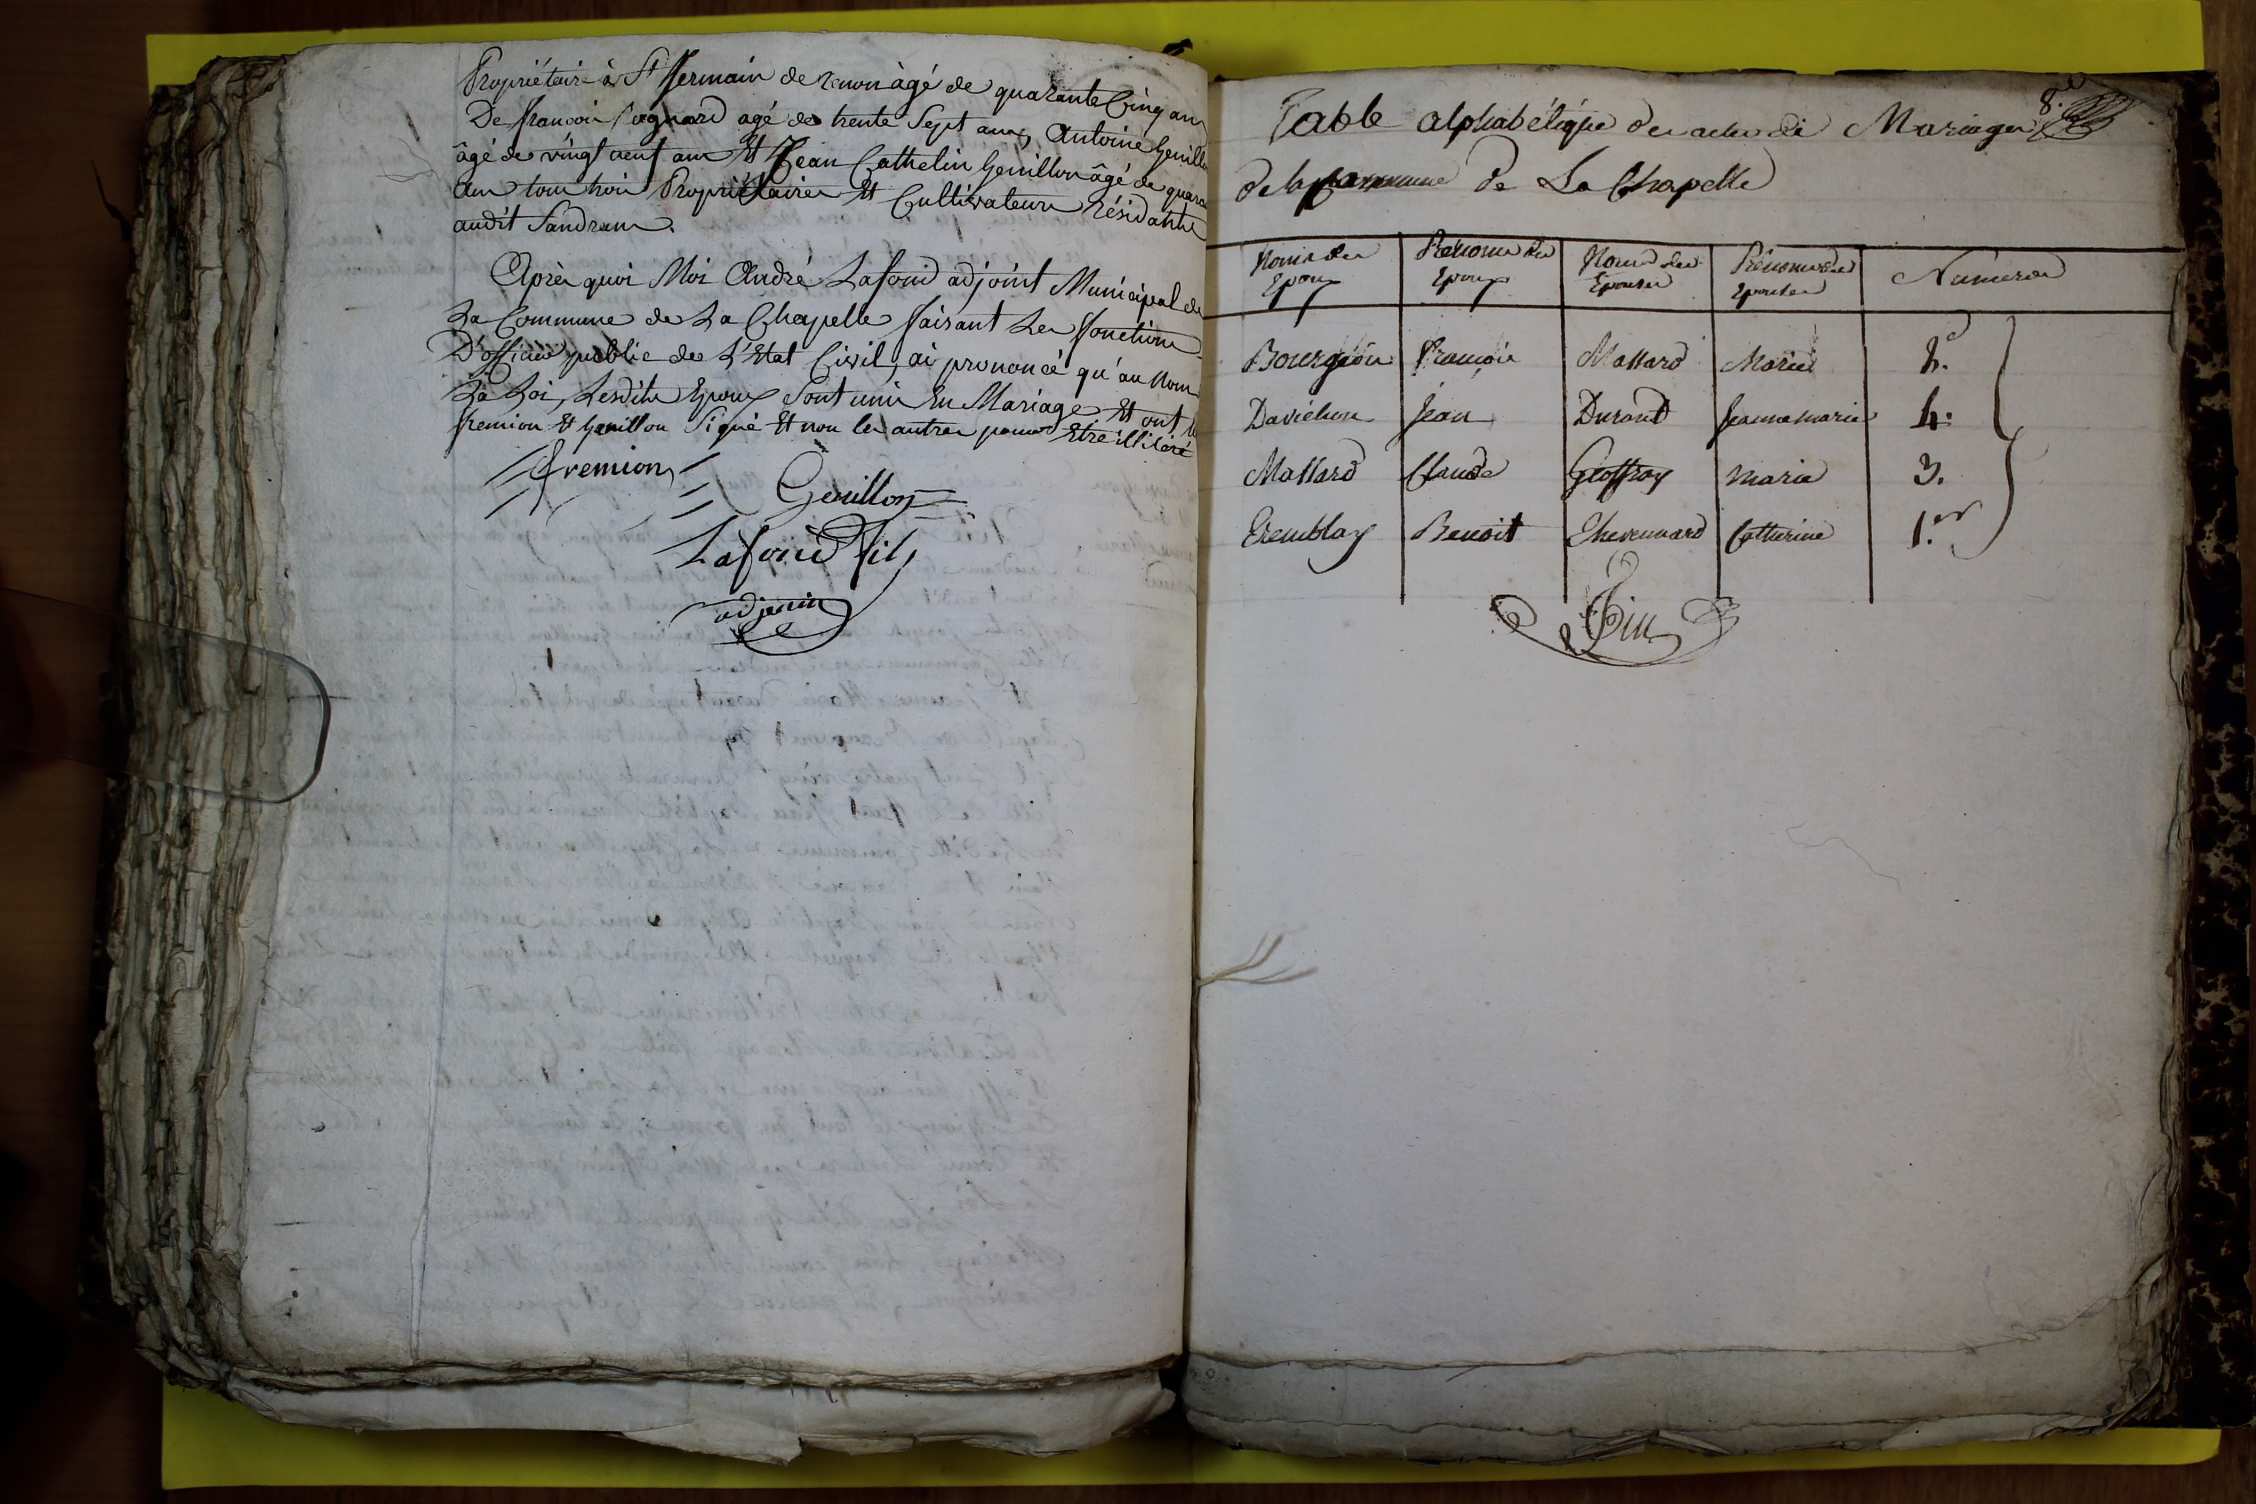 Propriétaire à St Germain de renon âgé de quarante Cinq ans
De françois agé de trente Sept ans, Antoine Genillon
âgé de vingt neuf ans Et Jean Cathelin Genillon âgé de
ans tous trois Propriétaires Et Cultivateurs Résidants
audit Sandrans.
Après quoi Moi André Lafond adjoint Municipal de
La Commune de La Chapelle faisant Les fonctions
D'officier public de L'Etat Civil, ai prononcé qu'au Nom
La Loi, Lesdits Epoux Sont unis En Mariage Et ont
fremion Et Genillon Signé Et non les autres pour Etre illiteré
fremion
Genillon
Lafond fils
adjoint
8.e
Table alphabétique des actes de Mariages
de la Commune de La Chapelle
Noms des Epoux Prénoms des Epoux Noms des Epouses Prénoms des Epouses Numéros
Bourgeon françois Mallard Marie 2.e
Davichon Jean Durand Jeanne marie 4.
Mallard Claude Geoffray marie 3.
Tremblay Benoit Thevenard Catherine 1.er
Fin